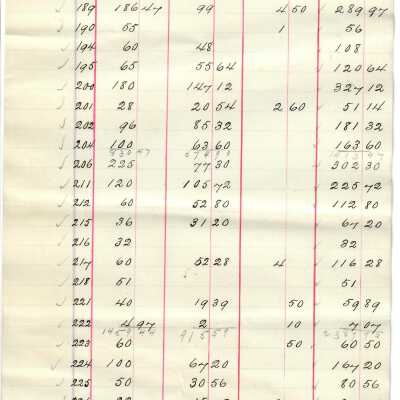 √ 189 186 47 99 4 50 √ 289 97
√ 190 55 1 56
√ 194 60 48 108
√ 195 65 55 64 √ 120 64
√ 200 180 147 12 √ 327 12
√ 201 28 20 54 2 60 √ 51 14
√ 202 96 85 32 √ 181 32
√ 204 100 63 60 163 60
√ 206 225 77 30 302 30
√ 211 120 105 72 √ 225 72
√ 212 60 52 80 √ 112 80
√ 215 36 31 20 67 20
√ 216 32 √ 32
√ 217 60 52 28 4 √ 116 28
√ 218 51 √ 51
√ 221 40 19 39 50 √ 59 89
√ 222 4 97 2 10 √ 7 07
√ 223 60 50 60 50
√ 224 100 67 20 √ 167 20
√ 225 50 30 56 √ 80 56